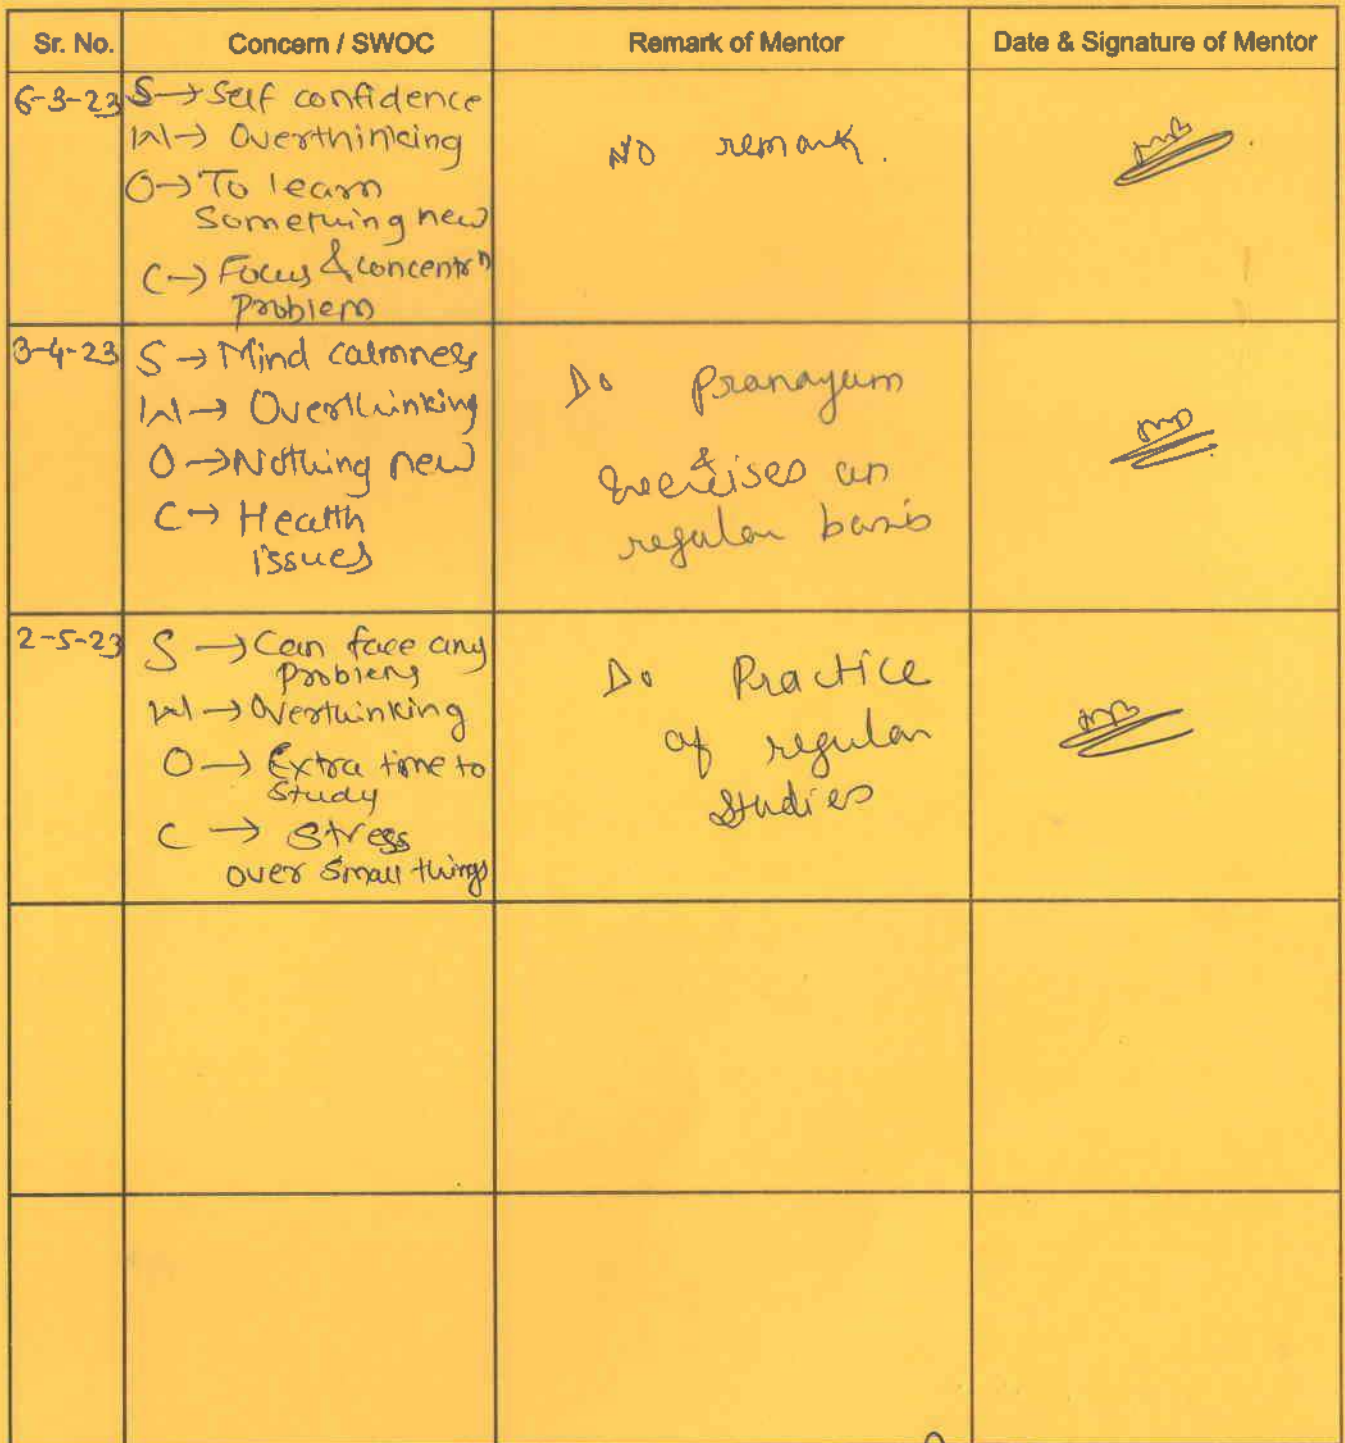 Sr. No. Concern / SWOC Remark of Mentor Date & Signature of Mentor
6-3-23 S → Self confidence
W → Overthinking
O → To learn
Something new
C → Focus & concentrⁿ
Problem
No remark.
3-4-23 S → Mind calmness
W → Overthinking
O → Nothing new
C → Health
issues
Do Pranayam
&
exercises on
regular basis
2-5-23 S → Can face any
Problems
W → Overthinking
O → Extra time to
Study
C → Stress
over small things
Do Practice
of regular
Studies